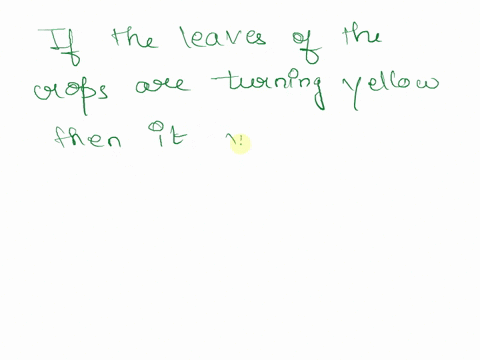 If the leaves of the
crops are turning yellow
then it